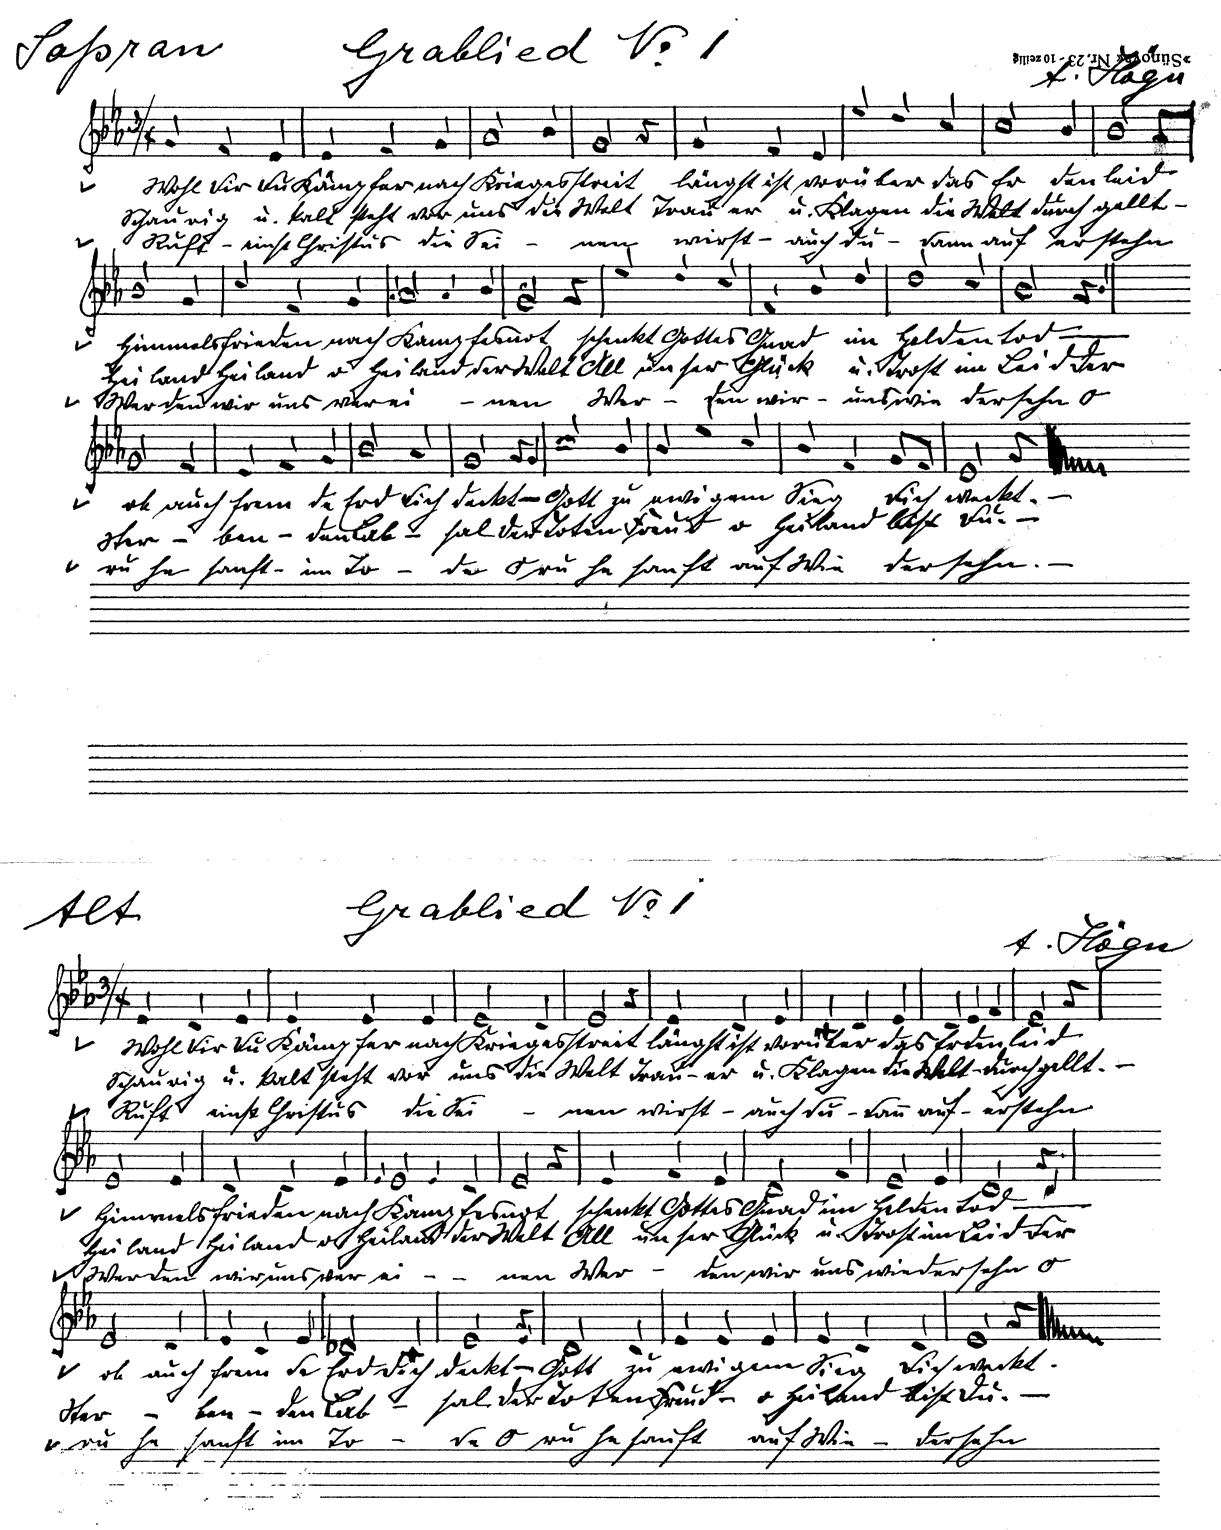 Sopran Grablied No. 1
»Sünova« Nr. 23 - 10 zeilig
A. Högn
3/4
Wohl dir du Kämpfer nach Kriegesstreit längst ist vorüber das Er den leid
Schaurig u. kalt steht vor uns die Welt Trau er u. Klagen die Welt durch gellt -
Ruft - einst Christus die Sei - nen wirst - auch du - dann auf erstehn
Himmelsfrieden nach Kampfesnot schenkt Gottes Gnad im Heldentod
Heiland Heiland o Heiland der Welt All unser Glück u. Trost im Leid der
Werden wir uns verei - nen Wer - den wir - uns wie dersehn O
ob auch frem de Erd dich deckt - Gott zu ewigem Sieg dich weckt. -
Ster - ben - den Lab - sal der Toten Freud o Heiland bist du. -
ru he sanft - im To - de O ru he sanft auf Wie dersehn. -
Alt Grablied No. 1
A. Högn
3/4
Wohl dir du Kämpfer nach Kriegesstreit längst ist vorüber das Erdenleid
Schaurig u. kalt steht vor uns die Welt Trau - er u. Klagen die Welt - durchgellt. -
Ruft einst Christus die Sei - nen wirst - auch du - dann auf - erstehn
Himmelsfrieden nach Kampfesnot schenkt Gottes Gnad im Heldentod
Heiland Heiland o Heiland der Welt All unser Glück u. Trost im Leid der
Werden wir uns ver ei - - nen Wer - den wir uns wiedersehn O
ob auch frem de Erd dich deckt - Gott zu ewigem Sieg dich weckt.
Ster - ben - den Lab - sal der Toten Freud - o Heiland bist du. -
ru he sanft im To - de O ru he sanft auf Wie - dersehn